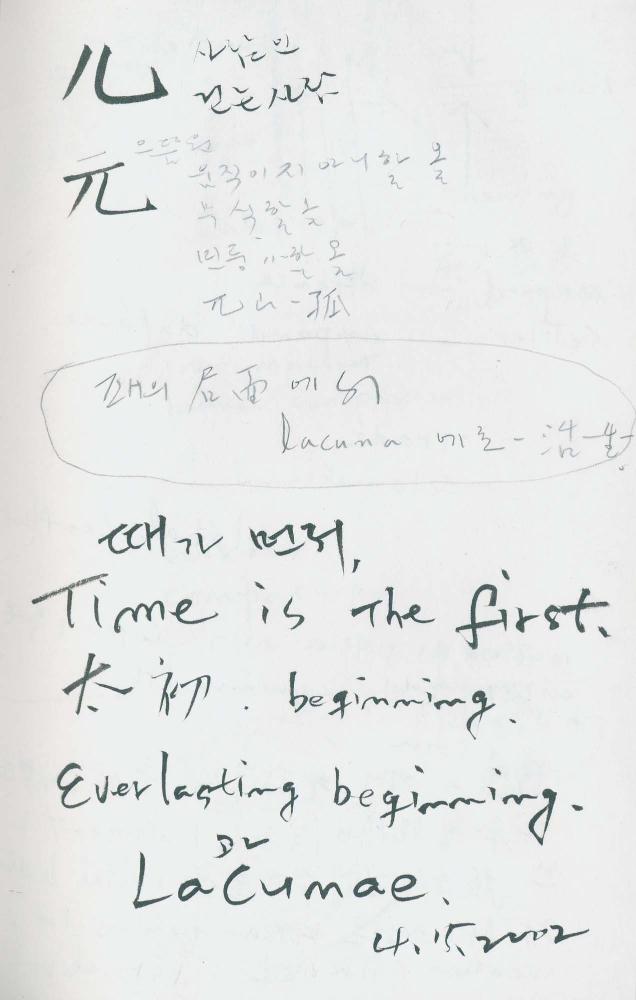 儿 사람인
걷는사람
元 으뜸원
움직이지 아니할 올
부석할
민둥민둥할 올
兀山-孤
패의 局面에서
lacuna 에로-活-生
때가 먼저,
Time is The first.
太初. beginning.
Everlasting beginning.
or
LaCunae.
4. 15. 2002